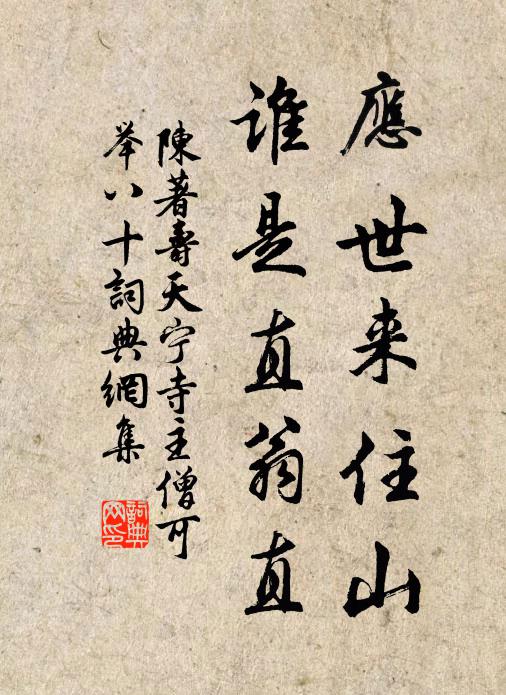 應世来住山
誰是直翁直
陳著壽天宁寺主僧可
举八十詞典網集
詞典
網印